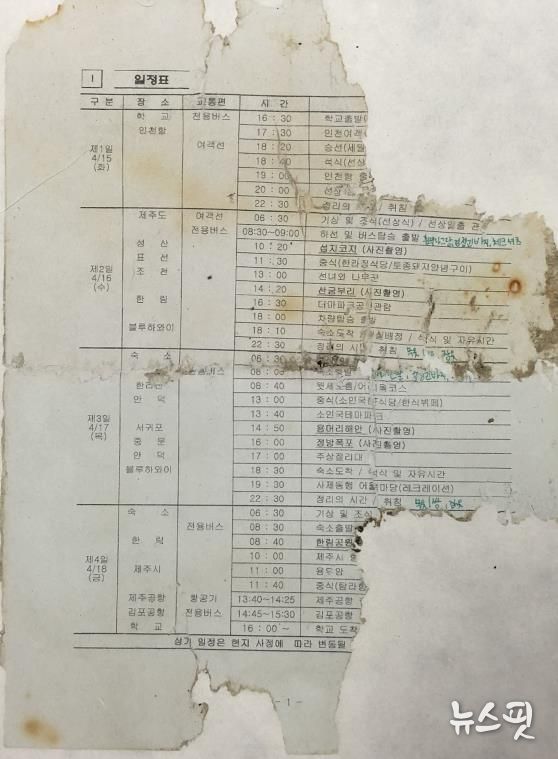 I 일정표
구 분 장 소 교통편 시 간
제1일 4/15 (화)
학 교 전용버스 16 : 30 학교출발
인천항 17 : 30 인천여객
여객선 18 : 20 승선(세월
18 : 40 석식(선상
19 : 00 인천항 출
20 : 00 선상
22 : 30 정리의 / 취침
제2일 4/16 (수)
제주도 여객선 06 : 30 기상 및 조식(선상식) / 선상일출 관
전용버스 08:30~09:00 하선 및 버스탑승 출발
성 산 10 : 20 섭지코지 (사진촬영)
표 선 11 : 30 중식(한라정식당/토종돼지양념구이)
조 천 13 : 00 선녀와 나무꾼
14 : 20 산굼부리 (사진촬영)
한 림 16 : 30 더마파크공연관람
18 : 00 차량탑승 출발
블루하와이 18 : 10 숙소도착 / 실배정 / 석식 및 자유시간
22 : 30 정리의 시간 / 취침
제3일 4/17 (목)
숙 소 06 : 30
08 : 00 숙소출발
한라산 08 : 40 윗세오름/어리목코스
안 덕 13 : 00 중식(소인국 식당/한식뷔페)
13 : 40 소인국테마파크
서귀포 14 : 50 용머리해안 (사진촬영)
중 문 16 : 00 정방폭포 (사진촬영)
안 덕 17 : 00 주상절리대
블루하와이 18 : 30 숙소도착 / 석식 및 자유시간
19 : 30 사제동행 어울 마당(레크레이션)
22 : 30 정리의 시간 / 취침
제4일 4/18 (금)
숙 소 06 : 30 기상 및 조식
전용버스 08 : 30 숙소출발
한 림 08 : 40 한림공원
10 : 00 제주시
제주시 11 : 00 용두암
11 : 40 중식(탐라
제주공항 항공기 13:40~14:25 제주공항
김포공항 전용버스 14:45~15:30 김포공항
학 교 16 : 00 ~ 학교 도착
상기 일정은 현지 사정에 따라 변동될
- 1 -
뉴스핏